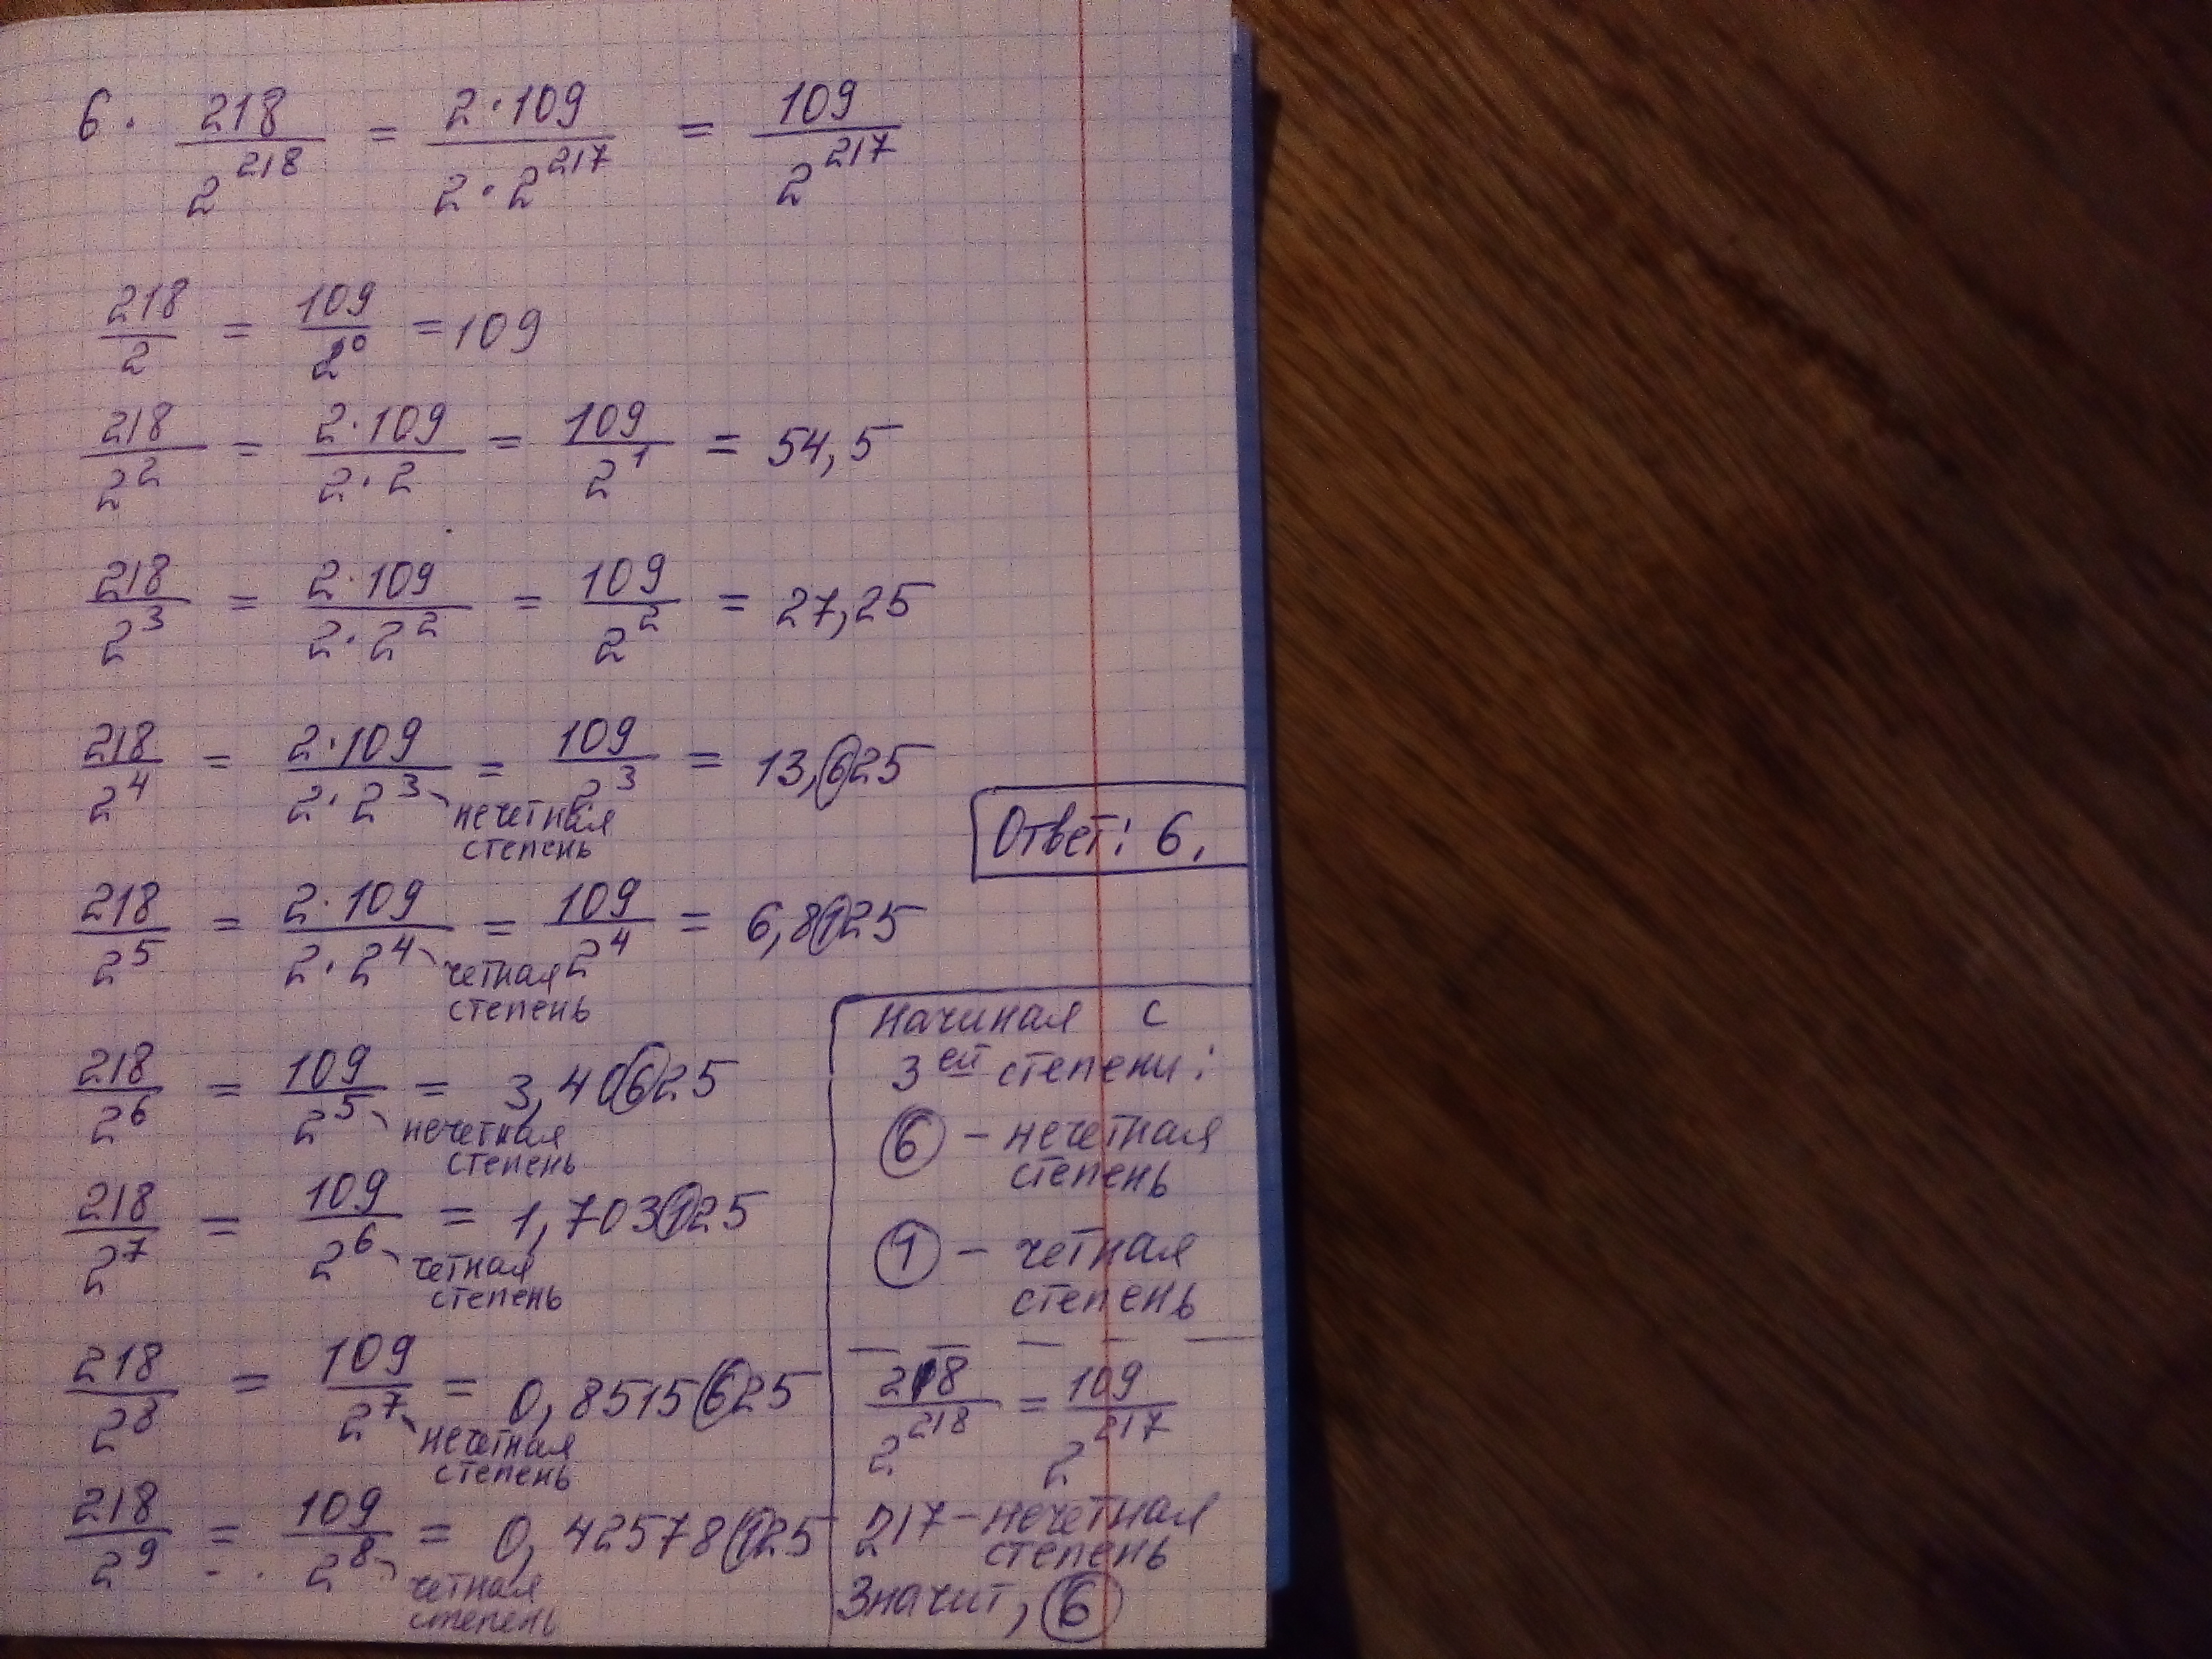 6. 218/2^218 = 2·109/2·2^217 = 109/2^217
218/2 = 109/2^0 = 109
218/2^2 = 2·109/2·2 = 109/2^1 = 54,5
218/2^3 = 2·109/2·2^2 = 109/2^2 = 27,25
218/2^4 = 2·109/2·2^3 = 109/2^3 = 13,625
нечетная
степень
Ответ: 6.
218/2^5 = 2·109/2·2^4 = 109/2^4 = 6,8125
четная
степень
218/2^6 = 109/2^5 = 3,40625
нечетная
степень
218/2^7 = 109/2^6 = 1,703125
четная
степень
218/2^8 = 109/2^7 = 0,8515625
нечетная
степень
218/2^9 = 109/2^8 = 0,42578125
четная
степень
Начиная с
3ей степени:
6 – нечетная
степень
1 – четная
степень
218/2^218 = 109/2^217
217 – нечетная
степень
Значит, 6